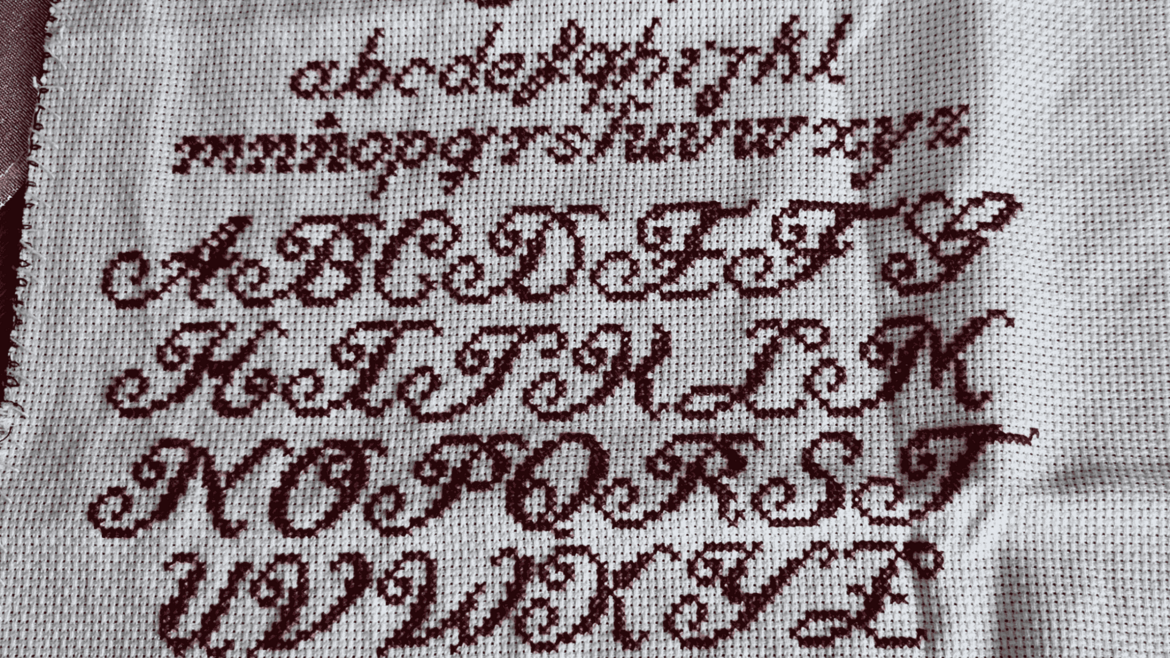 abcdefghijkl
mnñopqrstuvwxyz
ABCDEFG
HIJKLM
NOPQRST
UVWXYZ